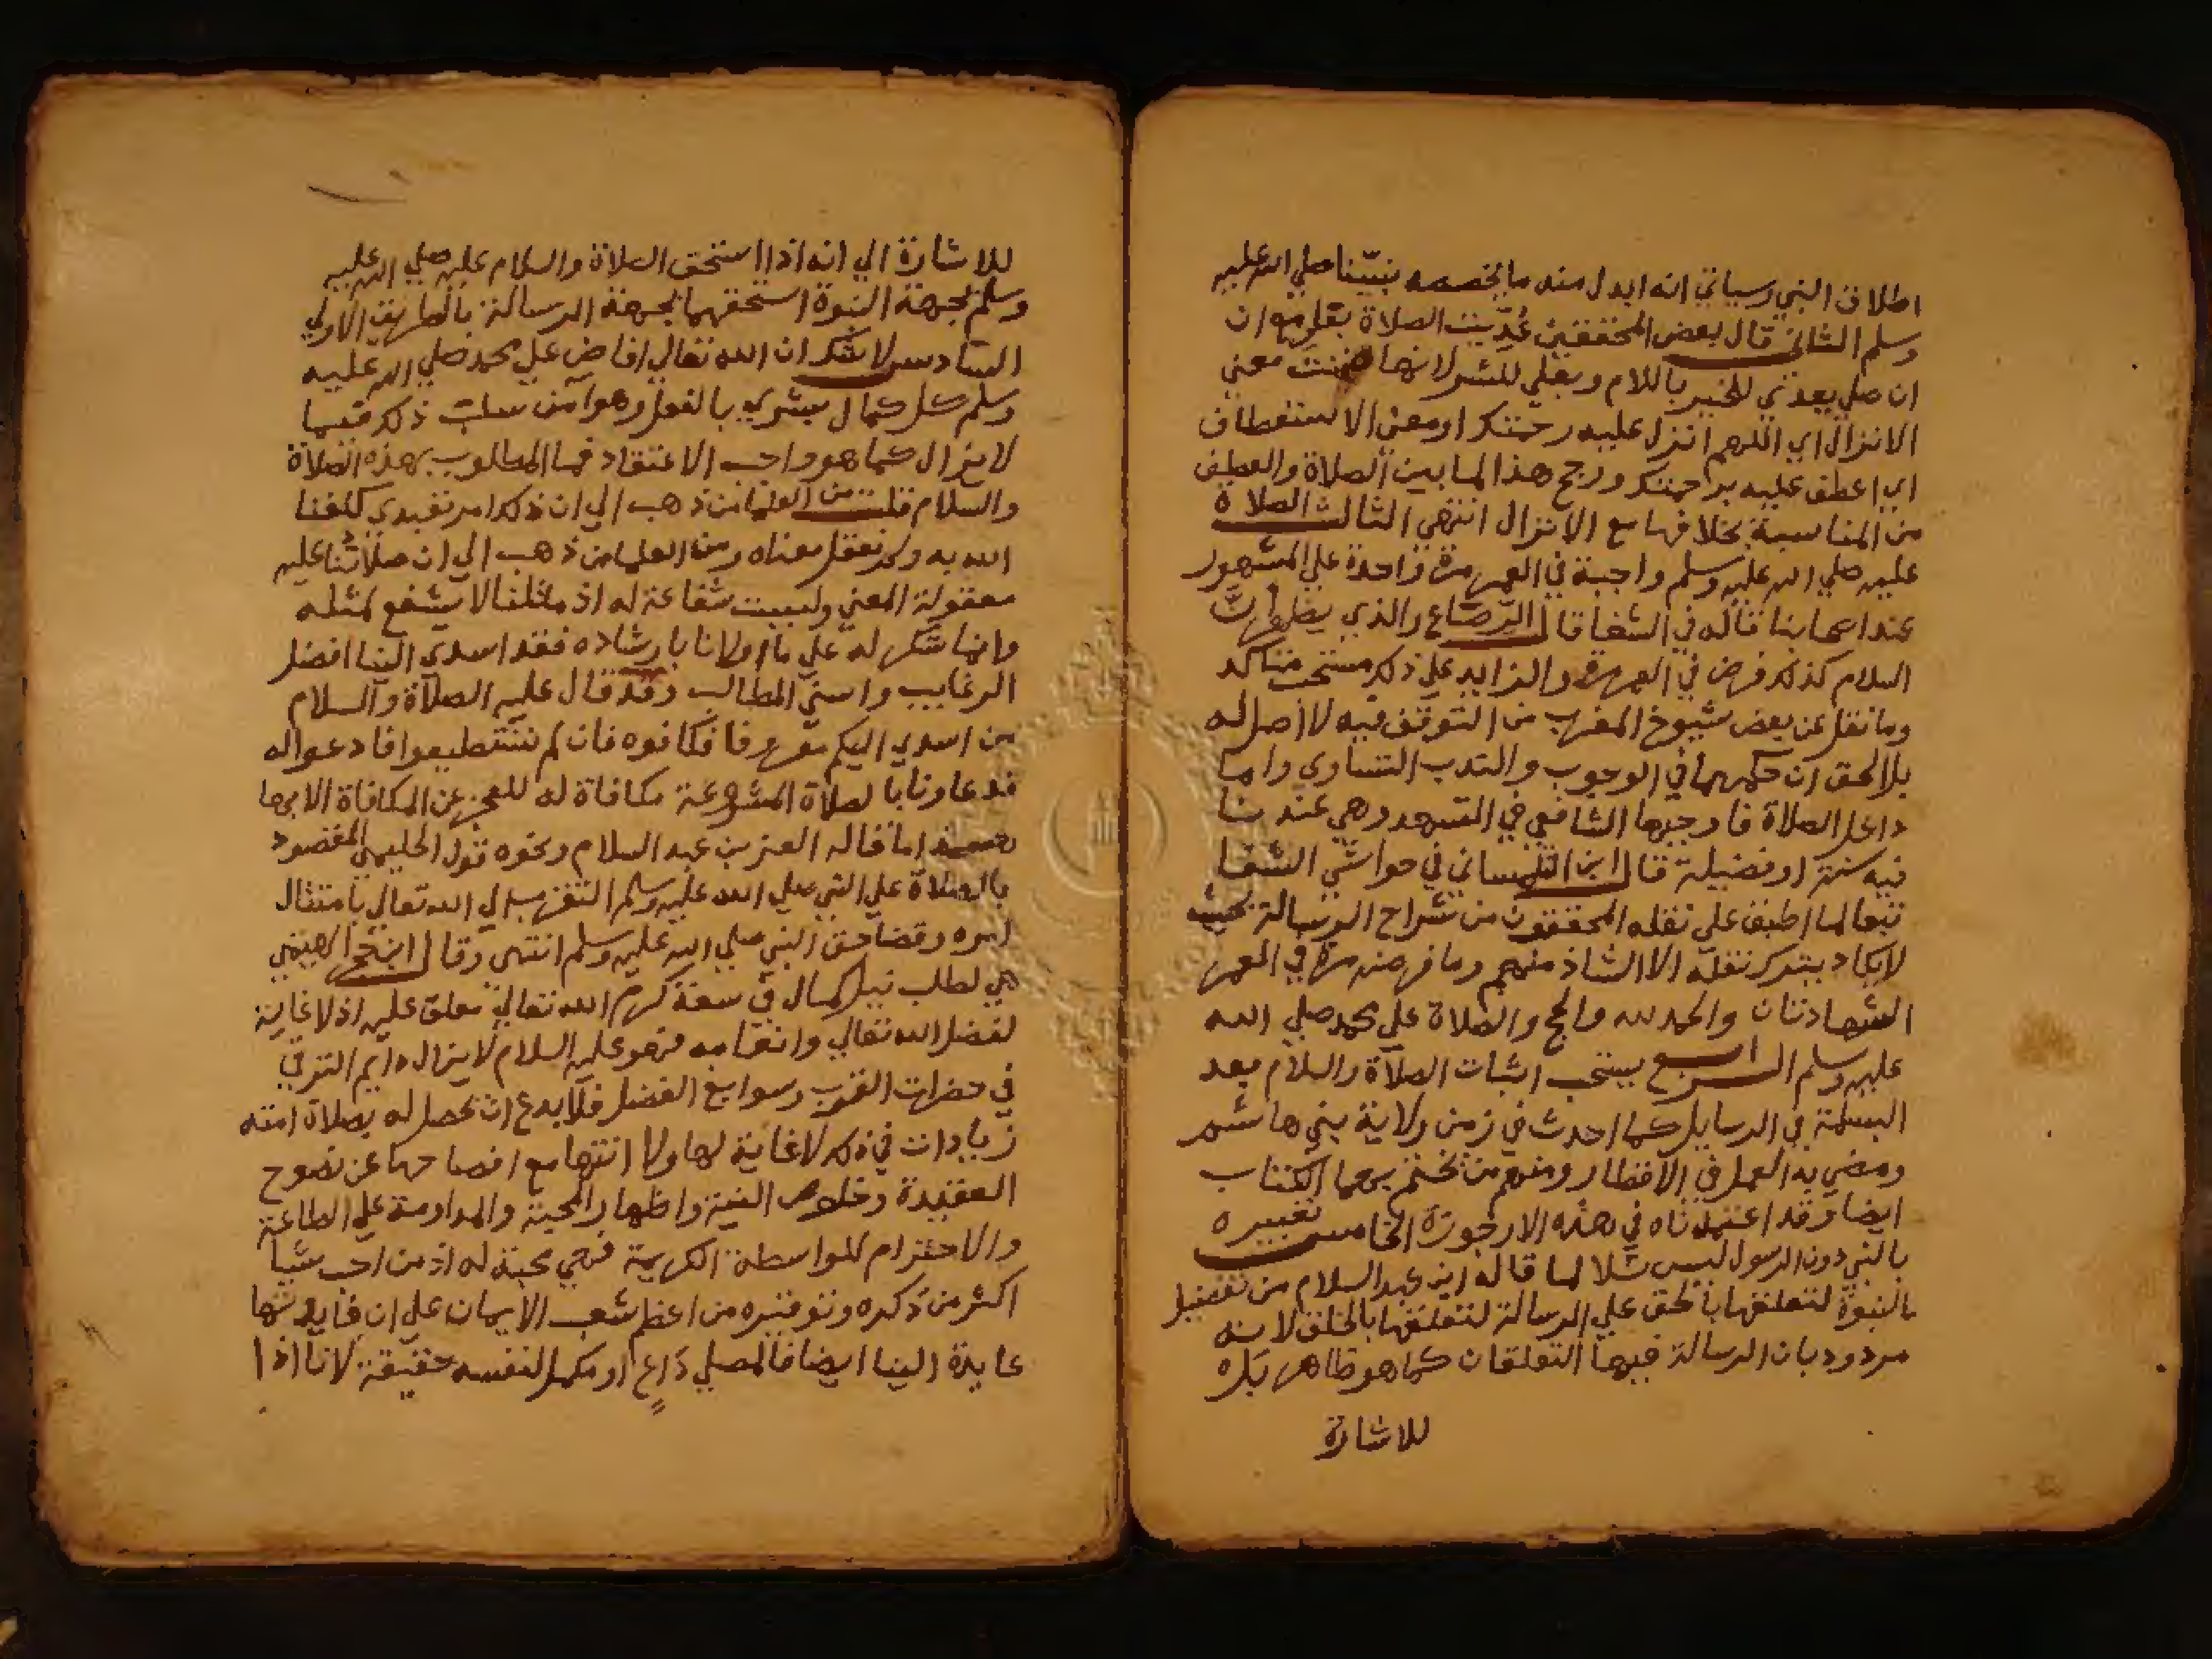 اطلاق النبي وسياتي انه ابدل منه ما يخصصه بنبينا صلي الله عليه
وسلم الثاني قال بعض المحققين عديت الصلاة بعلي مع ان
ان صلي يعدي للخير باللام وبعلي للشر لانها ضمنت معني
الانزال اي اللهم انزل عليه رحمتك او معني الاستعطاف
اي اعطف عليه برحمتك ورجح هذا لما بين الصلاة والعطف
من المناسبة بخلافها مع الانزال انتهي الثالث الصلاة
عليه صلي الله عليه وسلم واجبة في العمر مرة واحدة علي المشهور
عند اصحابنا قاله في الشفا قال الرصاع والذي يظهر ان
السلام كذلك فرض في العمر مرة والزايد علي ذلك مستحب متاكد
وما نقل عن بعض شيوخ المغرب من التوقف فيه لا اصل له
بل الحق ان حكمهما في الوجوب والندب التساوي واما
داخل الصلاة فاوجبها الشافعي في التشهد وهي عندنا
فيه سنة او فضيلة قال ابن التلمساني في حواشي الشفا
تبعا لما اطبق علي نقله المحققون من شراح الرسالة بحيث
لا يكاد يترك نقله الا الشاذ منهم وما فرضه مرة في العمر
الشهادتان والحمد لله والحج والصلاة علي محمد صلي الله
عليه وسلم الرابع يستحب اثبات الصلاة والسلام بعد
البسملة في الرسايل كما احدث في زمن ولاية بني هاشم
ومضي به العمل في الاقطار ومنهم من يختم بهما الكتاب
ايضا وقد اعتمدناه في هذه الارجوزة الخامس تعبيره
بالنبي دون الرسول ليس لما قاله ابن عبد السلام من تفضيل
النبوة لتعلقها بالحق علي الرسالة لتعلقها بالخلق لانه
مردود بان الرسالة فيها التعلقان كما هو ظاهر بل
للاشارة
للاشارة الي انه اذا استحق الصلاة والسلام عليه صلي الله عليه
وسلم بجهة النبوة استحقهما بجهة الرسالة بالطريق الاولي
السادس لا شك ان الله تعالي افاض علي محمد صلي الله عليه
وسلم كل كمال بشري بالفعل وهو آمن سلب ذلك فيما
لا يزال كما هو واجب الاعتقاد فما المطلوب بهذه الصلاة
والسلام قلت من العلما من ذهب الي ان ذلك امر تعبدي كلفنا
الله به ولم نعقل معناه ومن العلما من ذهب الي ان صلاتنا عليه
معقولة المعني وليست شفاعة له اذ مثلنا لا يشفع لمثله
وانما شكر له علي ما اولانا بارشاده فقد اسدي الينا افضل
الرغايب واسني المطالب وقد قال عليه الصلاة والسلام
من اسدي اليكم معروفا فكافوه فان لم تستطيعوا فادعوا له
فدعاونا بالصلاة المشروعة مكافاة له للعجز عن المكافاة الا بها
اما قاله العز بن عبد السلام ونحوه قول الحليمي المقصود
بالصلاة علي النبي صلي الله عليه وسلم التقرب الي الله تعالي بامتثال
امره وقضا حق النبي صلي الله عليه وسلم انتهي وقال ابن حجر الهيثمي
هي لطلب نيل كمال في سعة كرم الله تعالي معلق عليه اذ لا غاية
لفضل الله تعالي وانعامه فهو عليه السلام لا يزال دايم الترقي
في حضرات القرب وسوابغ الفضل فلا بدع ان يحصل له بصلاة امته
زيادات في ذلك لا غاية لها ولا انتها مع افصاحها عن نصوح
العقيدة وخلوص النية واظهار المحبة والمداومة علي الطاعة
والاحترام للواسطة الكريمة فهي محبة له اذ من احب شيا
اكثر من ذكره وتوقيره من اعظم شعب الايمان علي ان فايدتها
عايدة الينا ايضا فالمصلي داع او مكمل لنفسه حقيقة لانا اذا